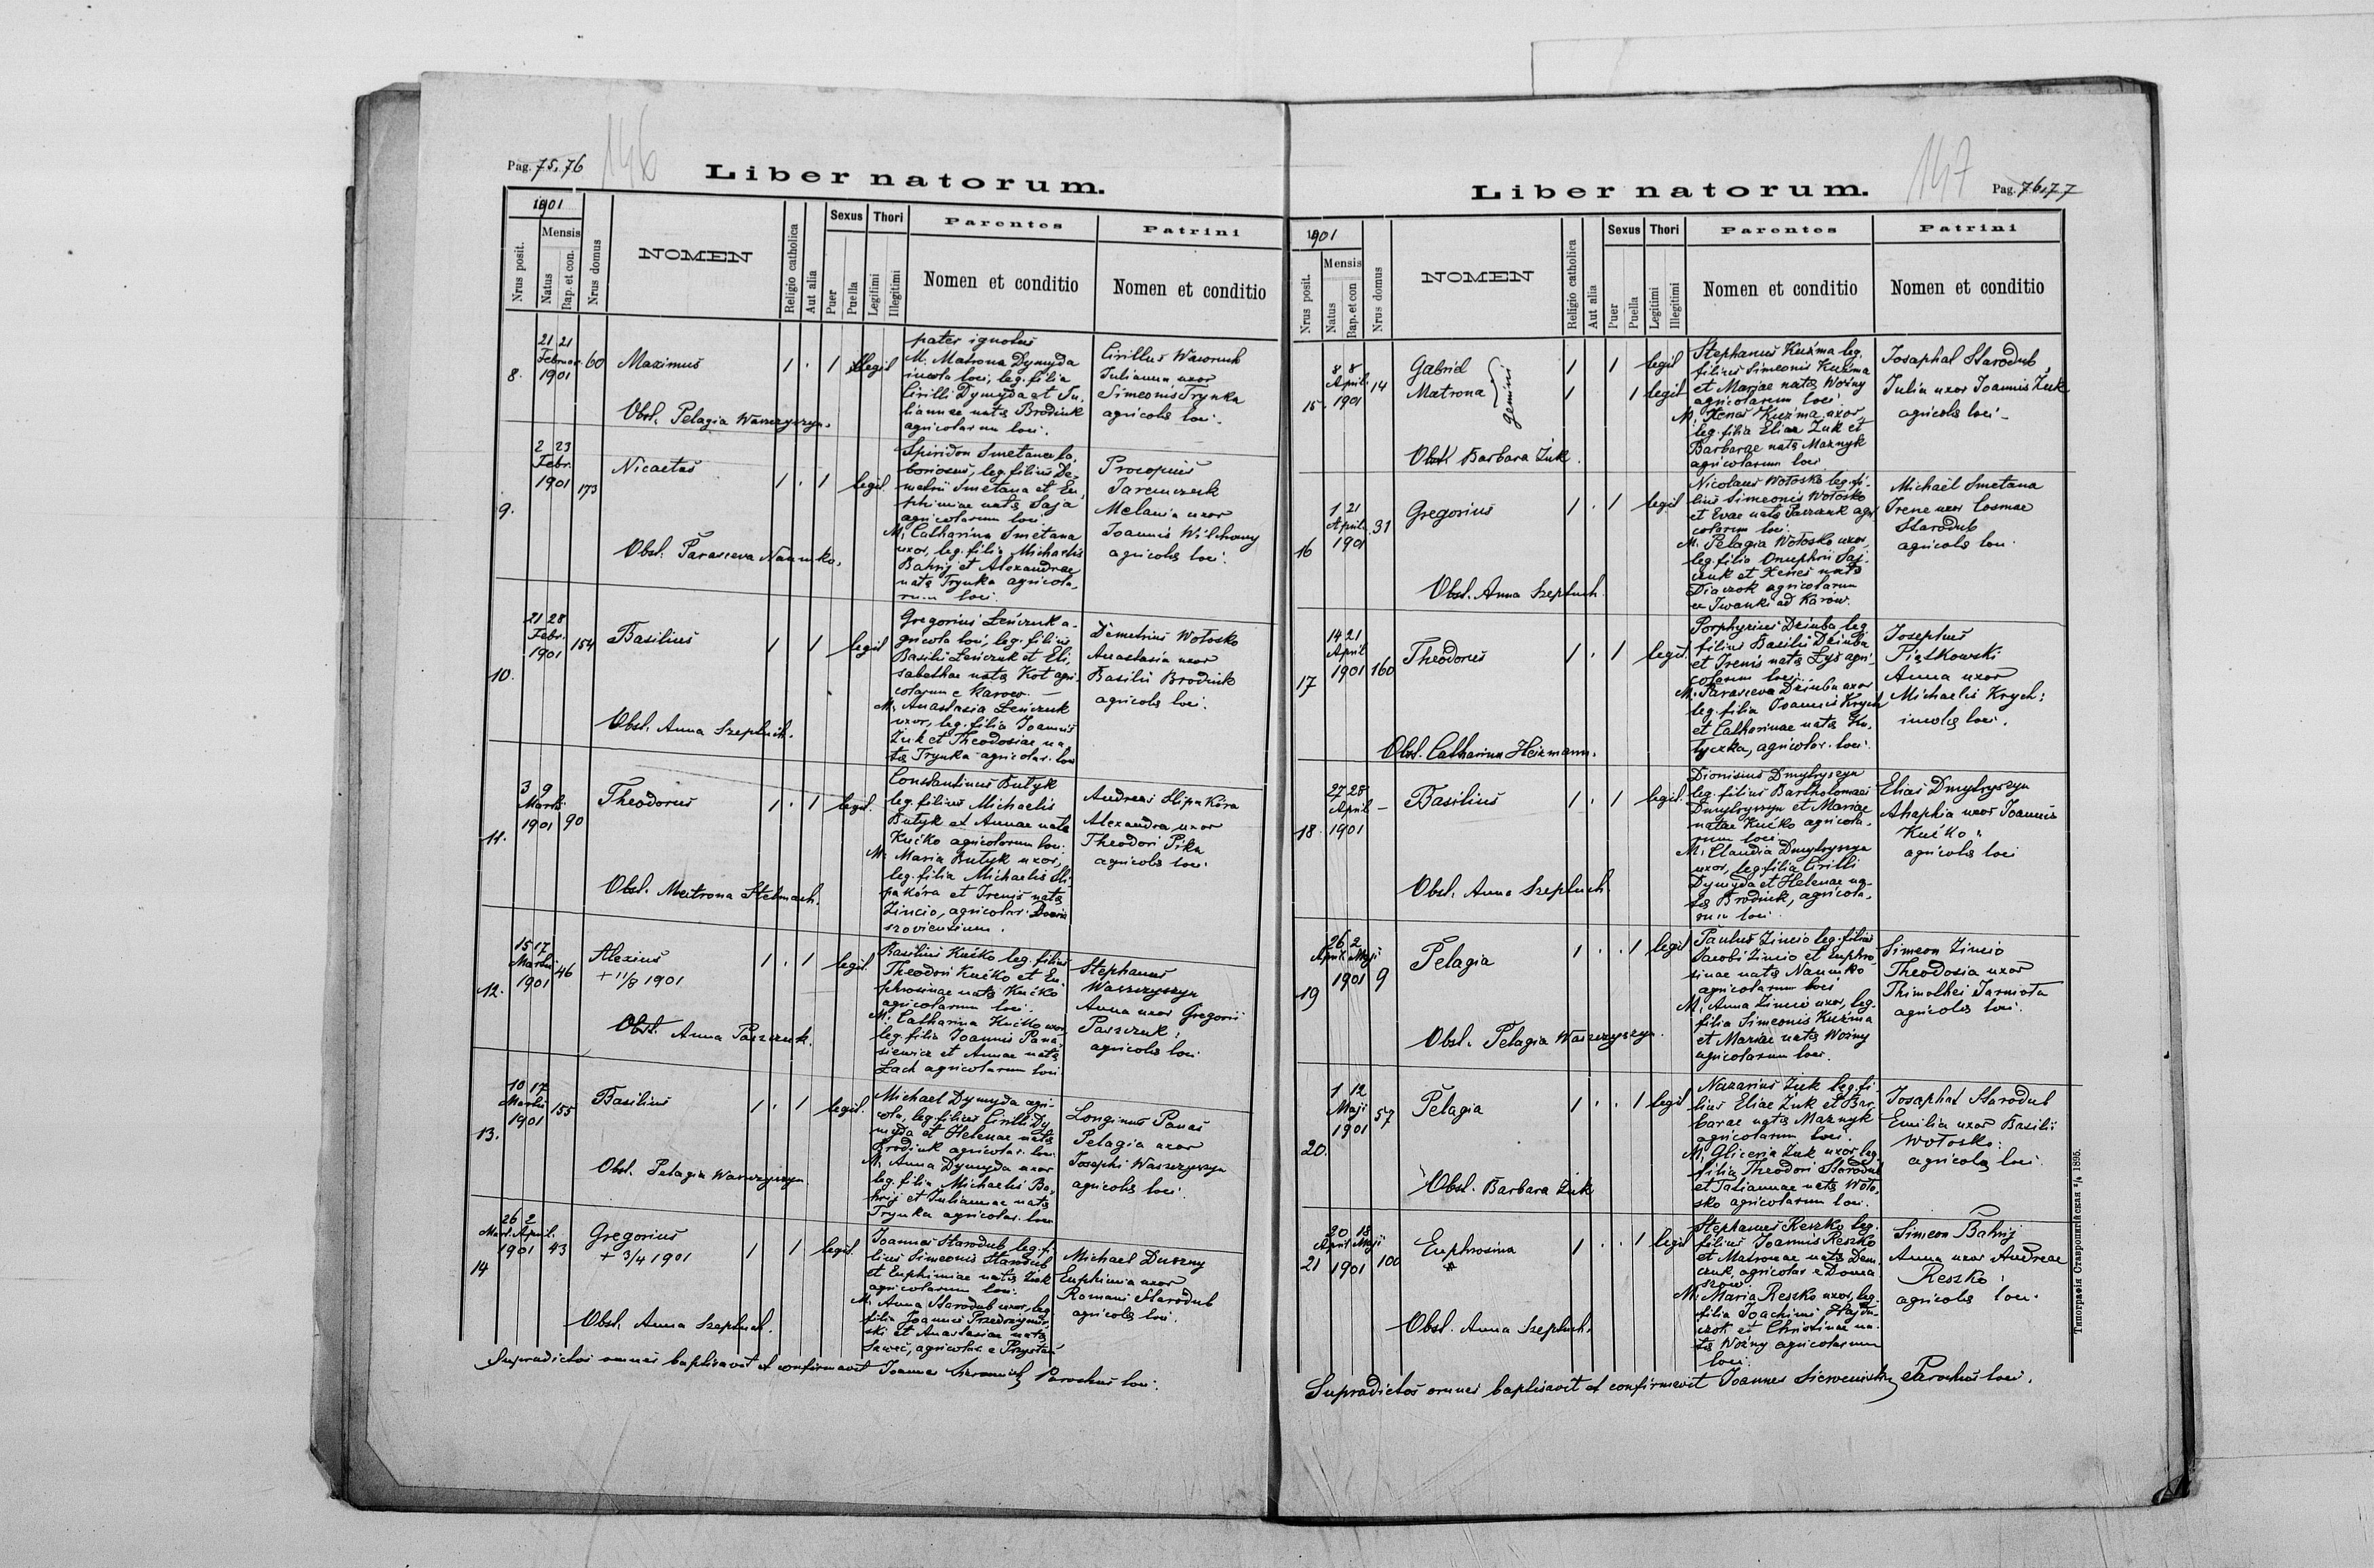 Pag. 75, 76
146
Liber natorum.
1901
Nrus posit.
Mensis
Natus
Bap. et con.
Nrus domus
NOMEN
Religio catholica
Aut alia
Sexus
Puer
Puella
Thori
Legitimi
Illegitimi
Parentes
Nomen et conditio
Patrini
Nomen et conditio
8.
21 21
Februar.
1901
60
Maximus
1 . 1 Illegit
Obst. Pelagia Waszczyszyn.
pater ignotus
M. Matrona Dymyda
incola loci, leg. filia
Cirilli Dymyda et Ju-
liannae natae Brodiuk
agricolarum loci.
Cirillus Waworuk
Julianna uxor
Simeonis Trynka
agricolae loci.
9.
2 23
Febr.
1901
173
Nicaetas
1 . 1 legit.
Obst. Parasceva Naumko.
Spiridon Smetana la-
boriosus, leg. filius De-
metrii Smetana et Eu-
phimiae natae Saja
agricolarum loci
M. Catharina Smetana
uxor, leg. filia Michaelis
Bahrij et Alexandrae
natae Trynka agricola-
rum loci.
Procopius
Jaremczuk
Melania uxor
Joannis Wilchowy
agricolae loci.
10.
21 28
Febr.
1901
154
Basilius
1 1 legit
Obst. Anna Szeptuch.
Gregorius Leńczuk a-
gricola loci, leg. filius
Basilii Leńczuk et Eli-
sabethae natae Kot agri-
colarum e Karow. —
M. Anastasia Leńczuk
uxor, leg. filia Joannis
Żuk et Theodosiae na-
tae Trynka agricolar. loci
Demetrius Wołosko
Anastasia uxor
Basilii Brodiuk
agricolae loci.
11.
3 9
Martii
1901
90
Theodorus
1 . 1 legit.
Obst. Matrona Stelmach.
Constantinus Butyk
leg. filius Michaelis
Butyk et Annae natae
Kućko agricolarum loci.
M. Maria Butyk uxor,
leg. filia Michaelis Sli-
pakóra et Irenis natae
Zincio, agricolar. Doma
szoviensium.
Andreas Slipakóra
Alexandra uxor
Theodori Pika
agricolae loci.
12.
15 17
Martii
1901
46
Alexius
+ 11/8 1901
1 . 1 legit.
Obst. Anna Paszczuk.
Basilius Kućko leg. filius
Theodori Kućko et Eu-
phrosinae natae Kućko
agricolarum loci.
M. Catharina Kućko uxor
leg. filia Joannis Pana-
siewicz et Annae natae
Łach agricolarum loci
Stephanus
Waszczyszyn
Anna uxor Gregorii
Paszczuk.
agricolae loci
13.
10 17
Martii
1901
155
Basilius
1 . 1 legit.
Obst. Pelagia Waszczyszyn
Michael Dymyda agri-
cola, leg. filius Cirilli Dy-
myda et Helenae natae
Brodiuk agricolar. loci.
M. Anna Dymyda uxor
leg. filia Michaelis Ba-
hrij et Juliannae natae
Trynka agricolar. loci
Longinus Panas
Pelagia uxor
Josephi Waszczyszyn
agricolae loci.
14
26 2
Mart. April.
1901
43
Gregorius
+ 3/4 1901
1 1 legit.
Obst. Anna Szeptuch.
Joannes Starodub leg. fi-
lius Simeonis Starodub
et Euphimiae natae Żuk
agricolarum loci.
M. Anna Starodub uxor, leg.
filia Joannis
ski et Anastasiae natae
Sawec, agricolar. e Przystań
Michael Duszny
Euphimia uxor
Romani Starodub
agricolae loci.
Supradictos omnes baptisavit et confirmavit Joannes Parochus loci.
147
Liber natorum.
Pag. 76,77
1901
Nrus posit.
Mensis
Natus
Bap. et con
Nrus domus
NOMEN
Religio catholica
Aut alia
Sexus
Puer
Puella
Thori
Legitimi
Illegitimi
Parentes
Nomen et conditio
Patrini
Nomen et conditio
15.
8 8
April.
1901
14
Gabriel
Matrona
gemini
1 1 legit
1 1 legit
Obst. Barbara Żuk.
Stephanus Kuźma leg.
filius Simeonis Kuźma
et Mariae natae Woźny
agricolarum loci
M. Xenas Kuźma uxor,
leg. filia Eliae Żuk et
Barbarae natae Maznyk
agricolarum loci
Josaphat Starodub
Julia uxor Joannis Żuk
agricolae loci —
16
1 21
April.
1901
31
Gregorius
1 . 1 legit
Obst. Anna Szeptuch.
Nicolaus Wołosko leg. fi-
lius Simeonis Wołosko
et Evae natae Paszczuk agri-
colarum loci.
M. Pelagia Wołosko uxor,
leg. filia Onuphrii Saj-
czuk et Xeniei natae
Diaczok agricolarum
ex Iwanki ad Karów.
Michael Smetana
Irene uxor Cosmae
Starodub
agricolae loci.
17
14 21
April
1901
160
Theodorus
1 . 1 legit.
Obst. Catharina Heizmann.
Porphyrius Dziuba leg.
filius Basilii Dziuba
et Irenis natae Łyś agri-
colarum loci.
M. Parasceva Dziuba uxor
leg. filia Joannis Krych
et Catharinae natae Ku-
tyczka, agricolar. loci.
Josephus
Piątkowski
Anna uxor
Michaelis Krych:
incolae loci.
18
27 28
April
1901
—
Basilius
1 . 1 legit.
Obst. Anna Szeptuch.
Dionisius Dmytryszyn
leg. filius Bartholomaei
Dmytryszyn et Mariae
natae Kućko agricola-
rum loci.
M. Claudia Dmytryszyn
uxor, leg. filia Cirilli
Dymyda et Helenae na-
tae Brodiuk, agricola-
rum loci.
Elias Dmytryszyn
Ahaphia uxor Joannis
Kućko.
agricolae loci
19
26 2
April Maji
1901
9
Pelagia
1 . . 1 legit
Obst. Pelagia Waszczyszyn.
Paulus Zincio leg. filius
Jacobi Zincio et Euphro-
sinae natae Naumko
agricolarum loci
M. Anna Zincio uxor, leg.
filia Simeonis Kuźma
et Mariae natae Woźny
agricolarum loci.
Simeon Zincio
Theodosia uxor
Thimothei Jarmoła
agricolae loci.
20.
1 12
Maji
1901
57
Pelagia
1 . . 1 legit
Obst. Barbara Żuk
Nazarius Żuk leg. fi-
lius Eliae Żuk et Bar-
barae natae Maznyk
agricolarum loci.
M. Gliceria Żuk uxor, leg.
filia Theodori Starodub
et Tatiannae natae Woło-
sko agricolarum loci.
Josaphat Starodub
Emilia uxor Basilii
Wołosko:
agricolae loci.
21
20 18
April Maji
1901
100
Euphrosina
*
1 . . 1 legit
Obst. Anna Szeptuch.
Stephanus Reszko leg.
filius Joannis Reszko
et Matronae natae Dem-
czuk, agricolar. e Doma
szow.
M. Maria Reszko uxor, leg.
filia Joachimi
et Christinae na-
tae Woźny agricolarum
loci.
Simeon Bahrij
Anna uxor Andreae
Reszko:
agricolae loci.
Supradictos omnes baptisavit et confirmavit Joannes Parochus loci.
Типографія Ставропигійская 1895.